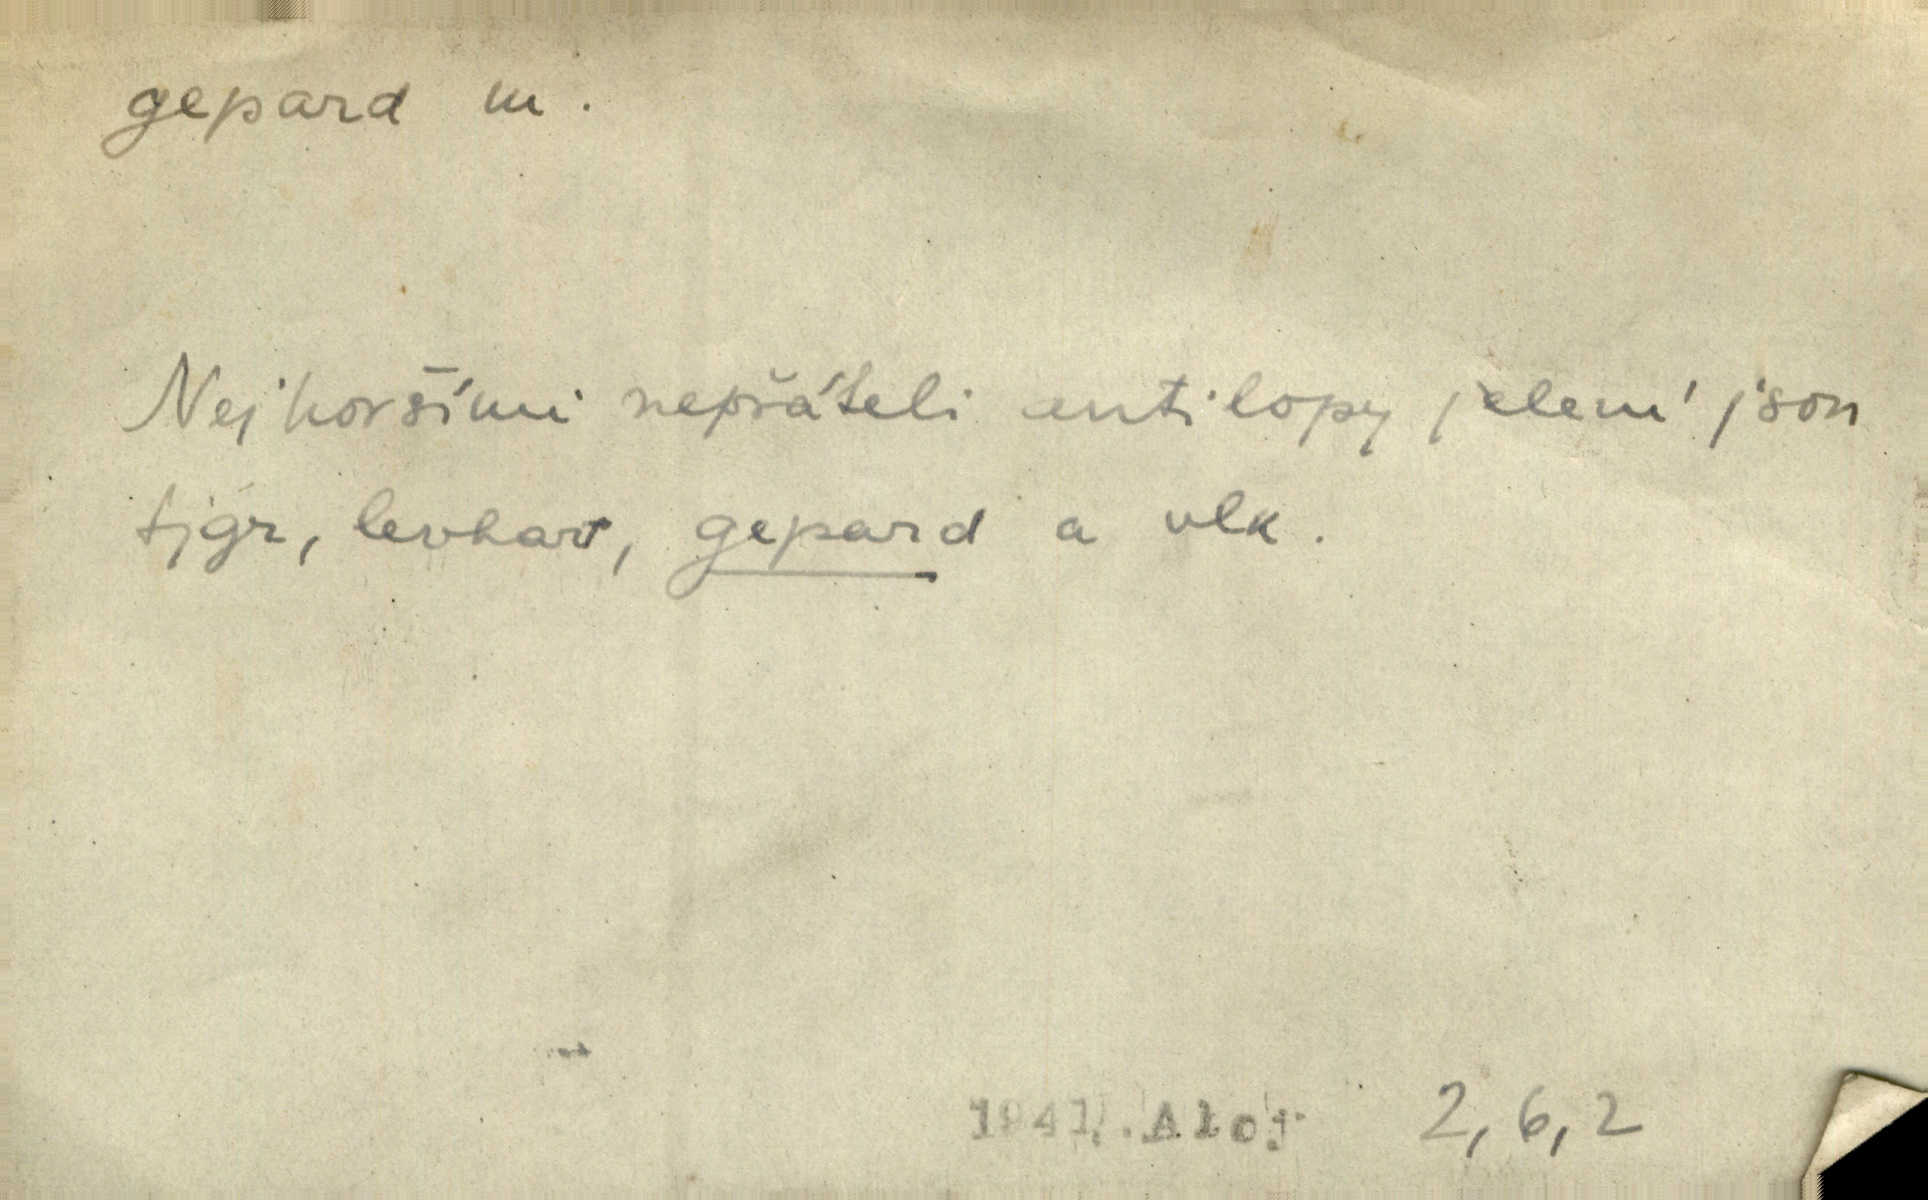 gepard m.
Nejhoršími nepřáteli antilopy jelení jsou
tygr, levhart, gepard a vlk.
1941. Aloj 2,6,2